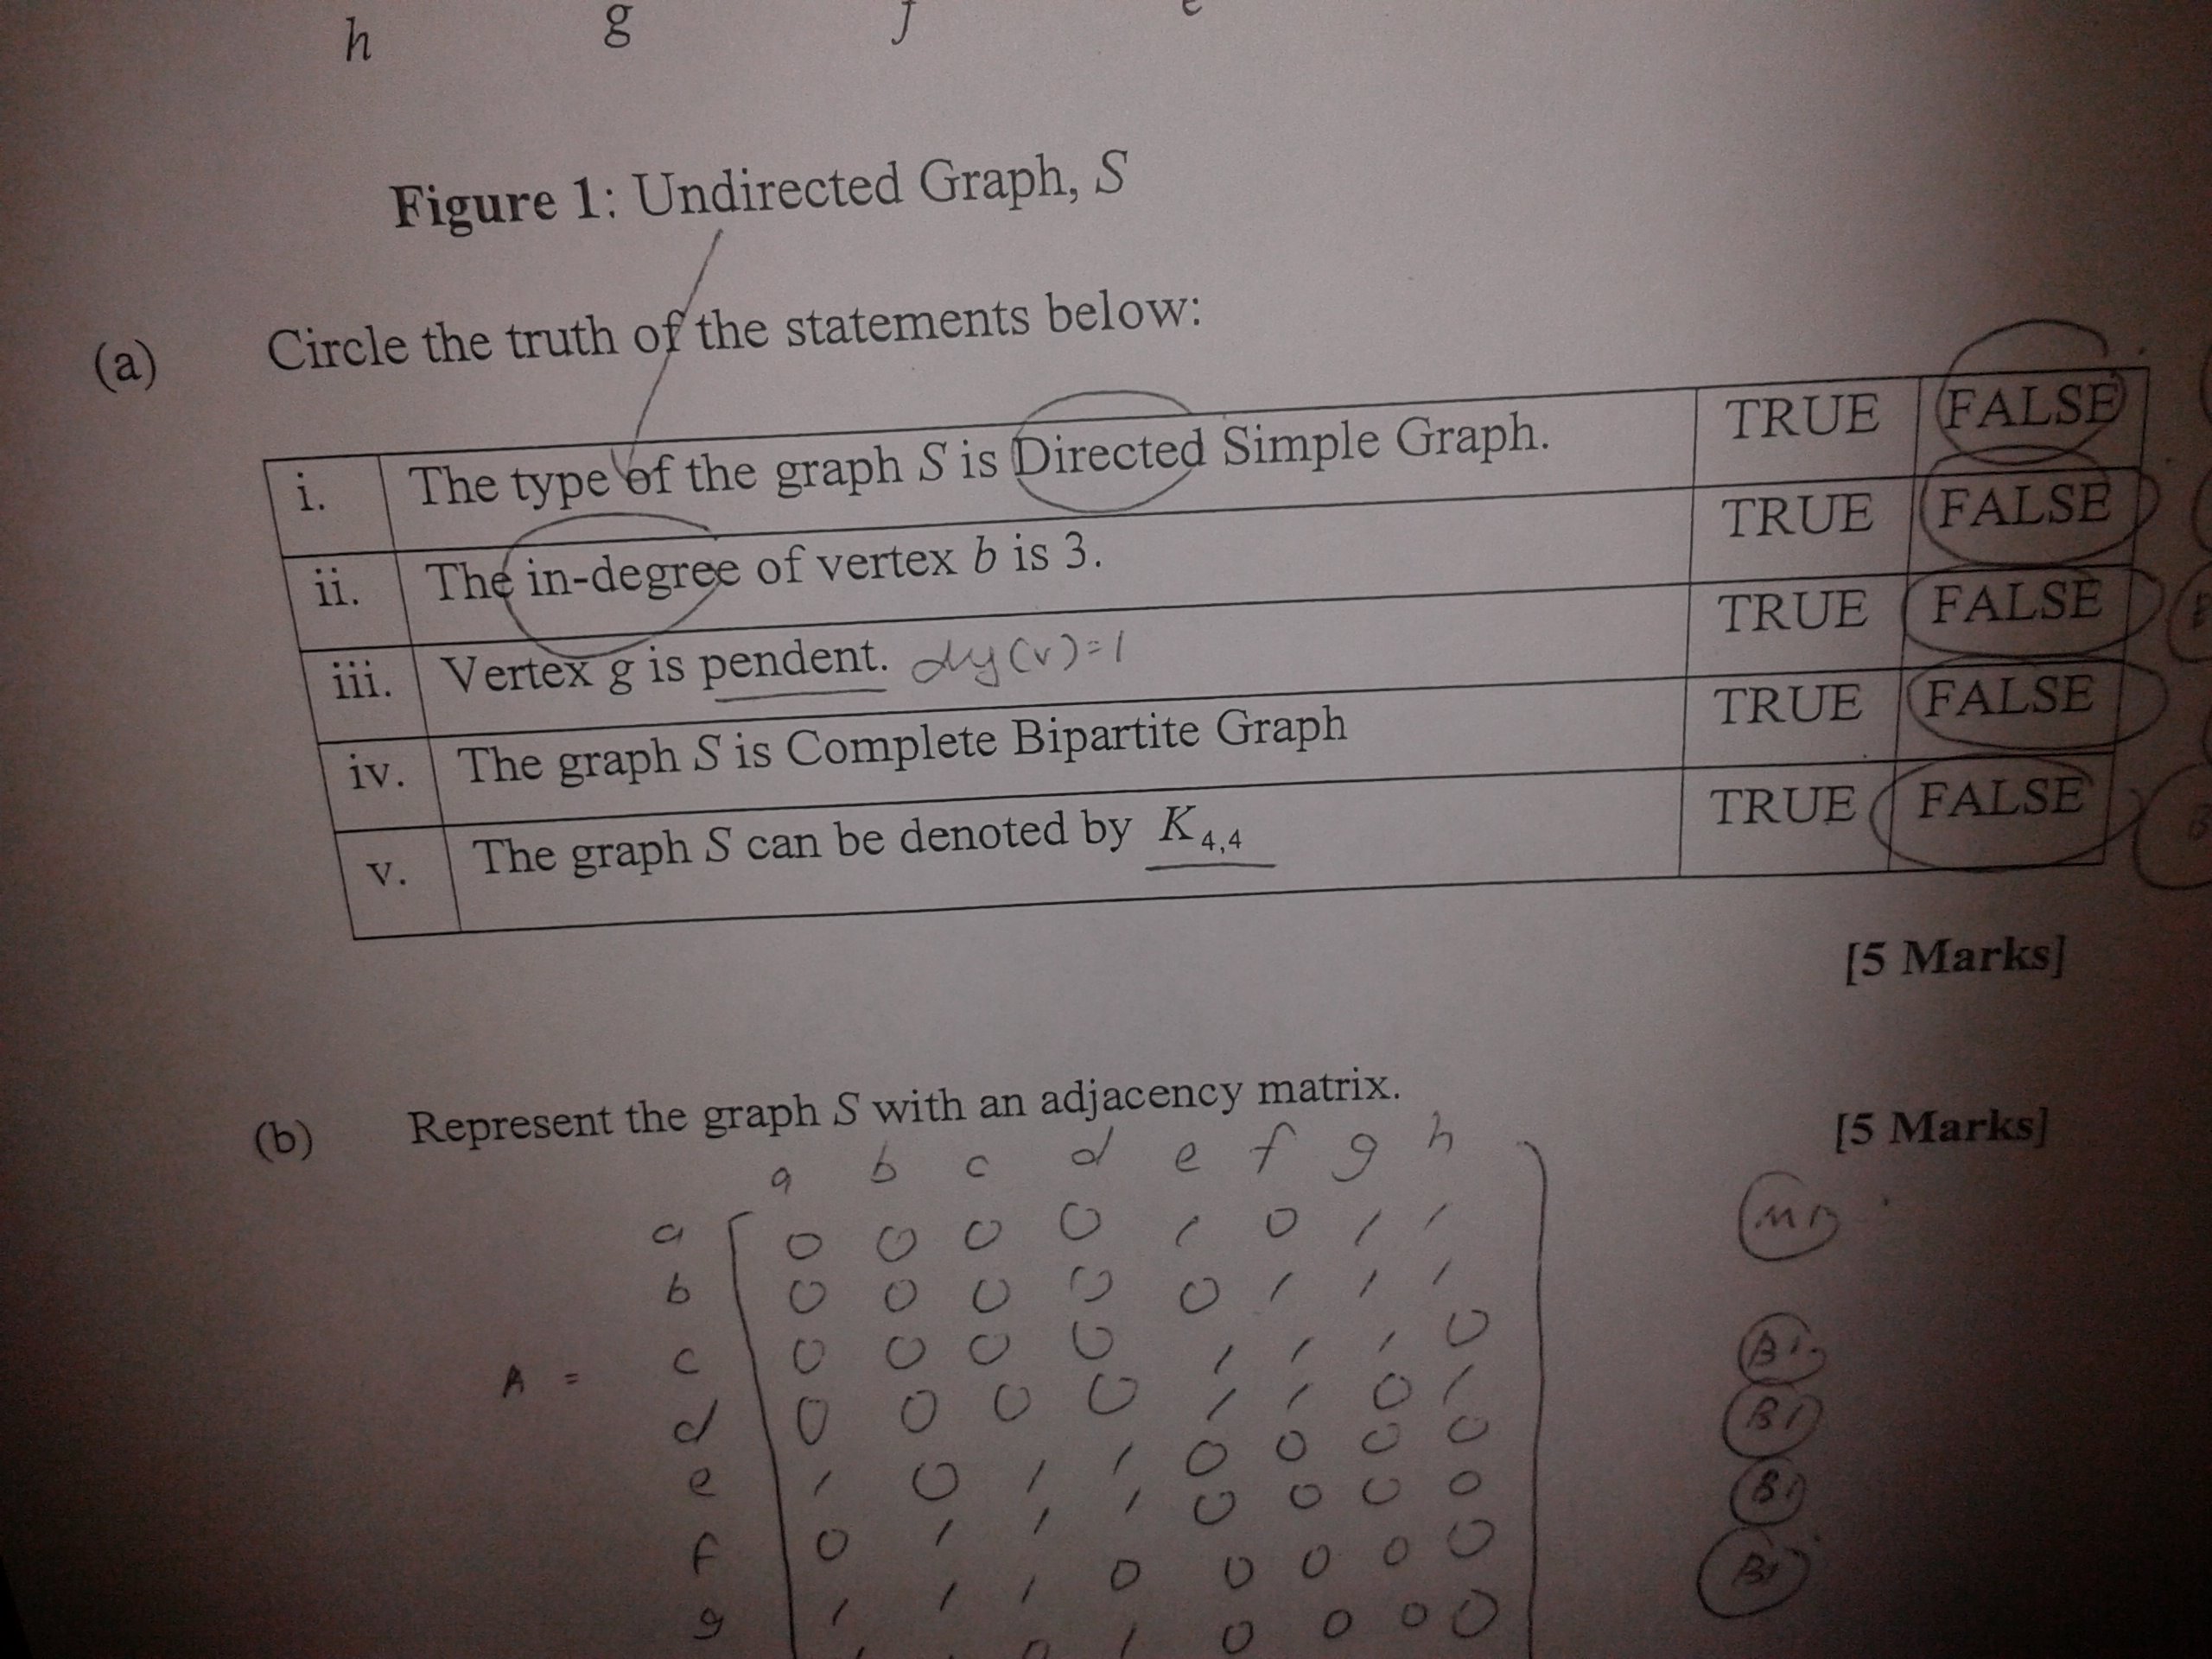 h g f e
Figure 1: Undirected Graph, S
(a) Circle the truth of the statements below:
i. The type of the graph S is Directed Simple Graph. TRUE FALSE
ii. The in-degree of vertex b is 3. TRUE FALSE
iii. Vertex g is pendent. deg(v)=1 TRUE FALSE
iv. The graph S is Complete Bipartite Graph TRUE FALSE
v. The graph S can be denoted by K4,4 TRUE FALSE
[5 Marks]
(b) Represent the graph S with an adjacency matrix. [5 Marks]
a b c d e f g h
a 0 0 0 0 1 0 1 1
b 0 0 0 0 0 1 1 1
A = c 0 0 0 0 1 1 1 0 B1
d 0 0 0 0 1 1 0 1 B1
e 1 0 1 1 0 0 0 0 B1
f 0 1 1 1 0 0 0 0 B1
g 1 1 1 0 0 0 0 0
0 1 0 0 0 0